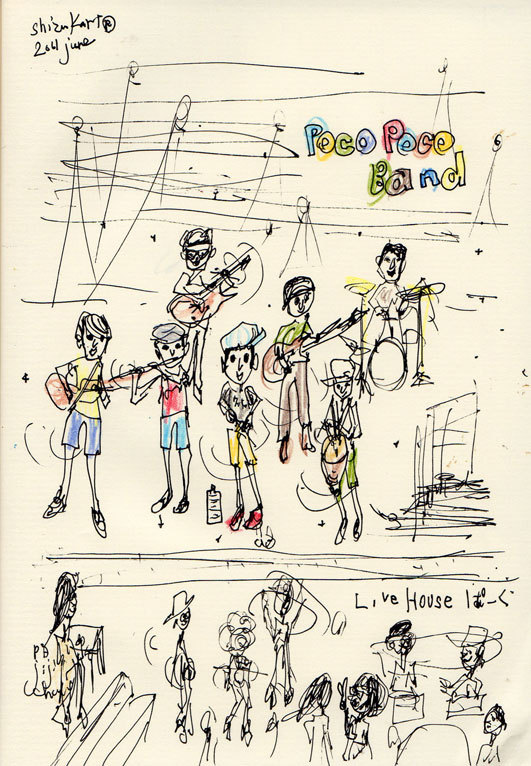 shizukart®
2011 june
Poco Poco
Band
Live House ぱーぐ
PB